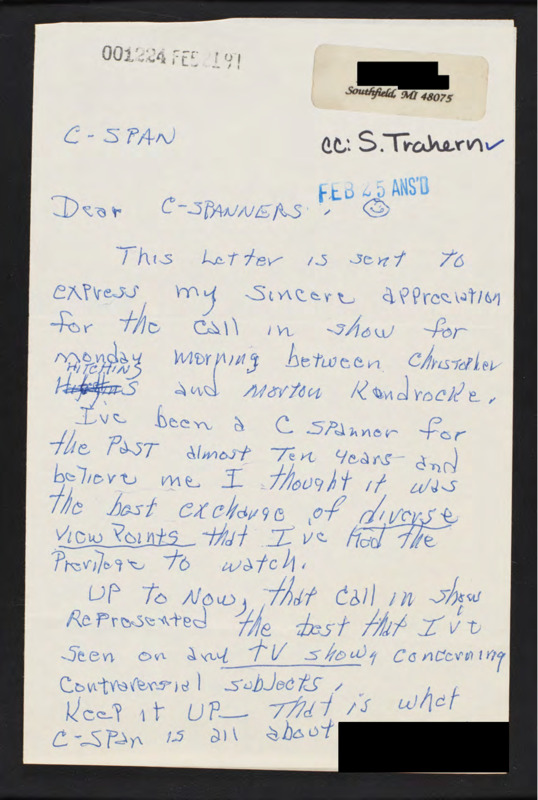 001224 FEB 21 91
Southfield, MI 48075
C-SPAN
cc: S. Trahern
FEB 25 ANS'D
Dear C-SPANNERS,
This Letter is sent to
express my sincere appreciation
for the call in show for
monday morning between Christopher
HITCHINS
and Morton Kondrocke.
I've been a C SPanner for
the Past almost Ten years and
believe me I thought it was
the best exchange of diverse
view Points that I've Had the
Privilege to watch.
UP to Now, that call in show
Represented the best that I've
seen on any TV show, concerning
Controversial subjects,
Keep it UP- That is what
C-SPan is all about